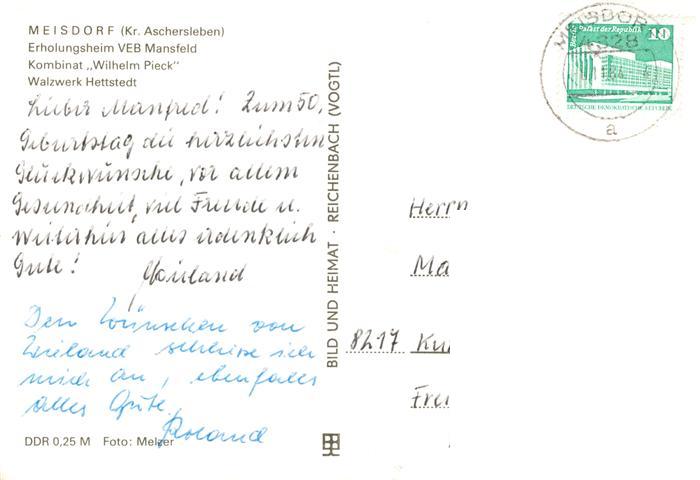 MEISDORF (Kr. Aschersleben)
Erholungsheim VEB Mansfeld
Kombinat „Wilhelm Pieck"
Walzwerk Hettstedt
Lieber Manfred! Zum 50.
Geburtstag die herzlichsten
Glückwünsche, vor allem
Gesundheit, viel Freude u.
weiterhin alles erdenklich
Gute! Wieland
Den Wünschen von
Wieland schliese ich
mich an, ebenfalls
alles Gute.
Roland
DDR 0,25 M Foto: Melzer
BILD UND HEIMAT · REICHENBACH (VOGTL)
MEISDORF
4328
a
Palast der Republik
10
DEUTSCHE DEMOKRATISCHE REPUBLIK
Herrn
Ma
8217
Frei